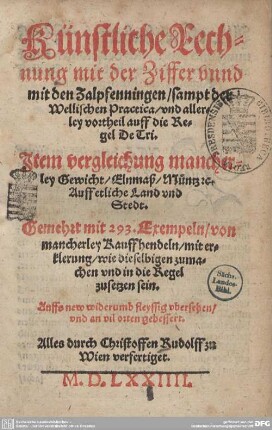 Künstliche Rech-
nung mit der Ziffer vnnd
mit den Zalpfenningen/sampt der
Wellischen Practica/vnd allere-
ley vortheil auff die Re-
gel De Tri.
Item vergleichung mancher-
ley Gewicht/Elnmaß/Müntz ꝛc.
Auff etliche Land vnd
Stedt.
Gemehrt mit 293. Exempeln/von
mancherley Kauffhendeln/mit er-
klerung/wie dieselbigen zuma-
chen vnd in die Regel
zusetzen sein.
Auffs new widerumb fleyssig vbersehen/
vnd an vil orten gebessert.
Alles durch Christoffen Rudolff zu
Wien verfertiget.
M. D. LXXIIII.
Sächs.
Landes-
Bibl.